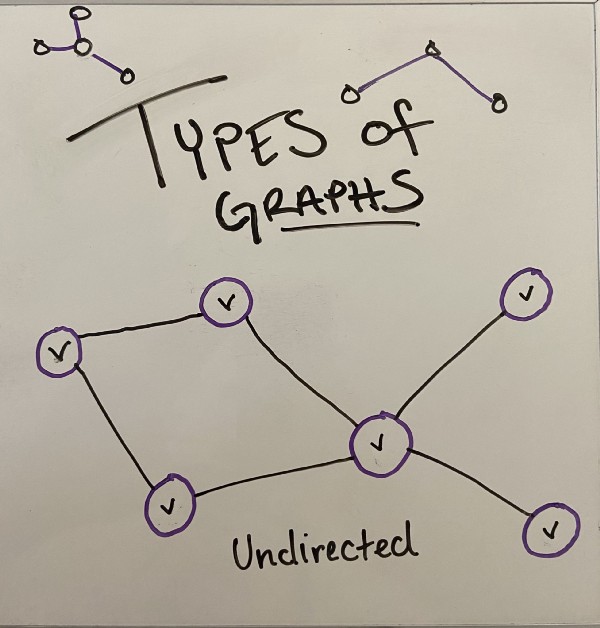 TYPES of
GRAPHS
v
v
v
v
v
v
Undirected